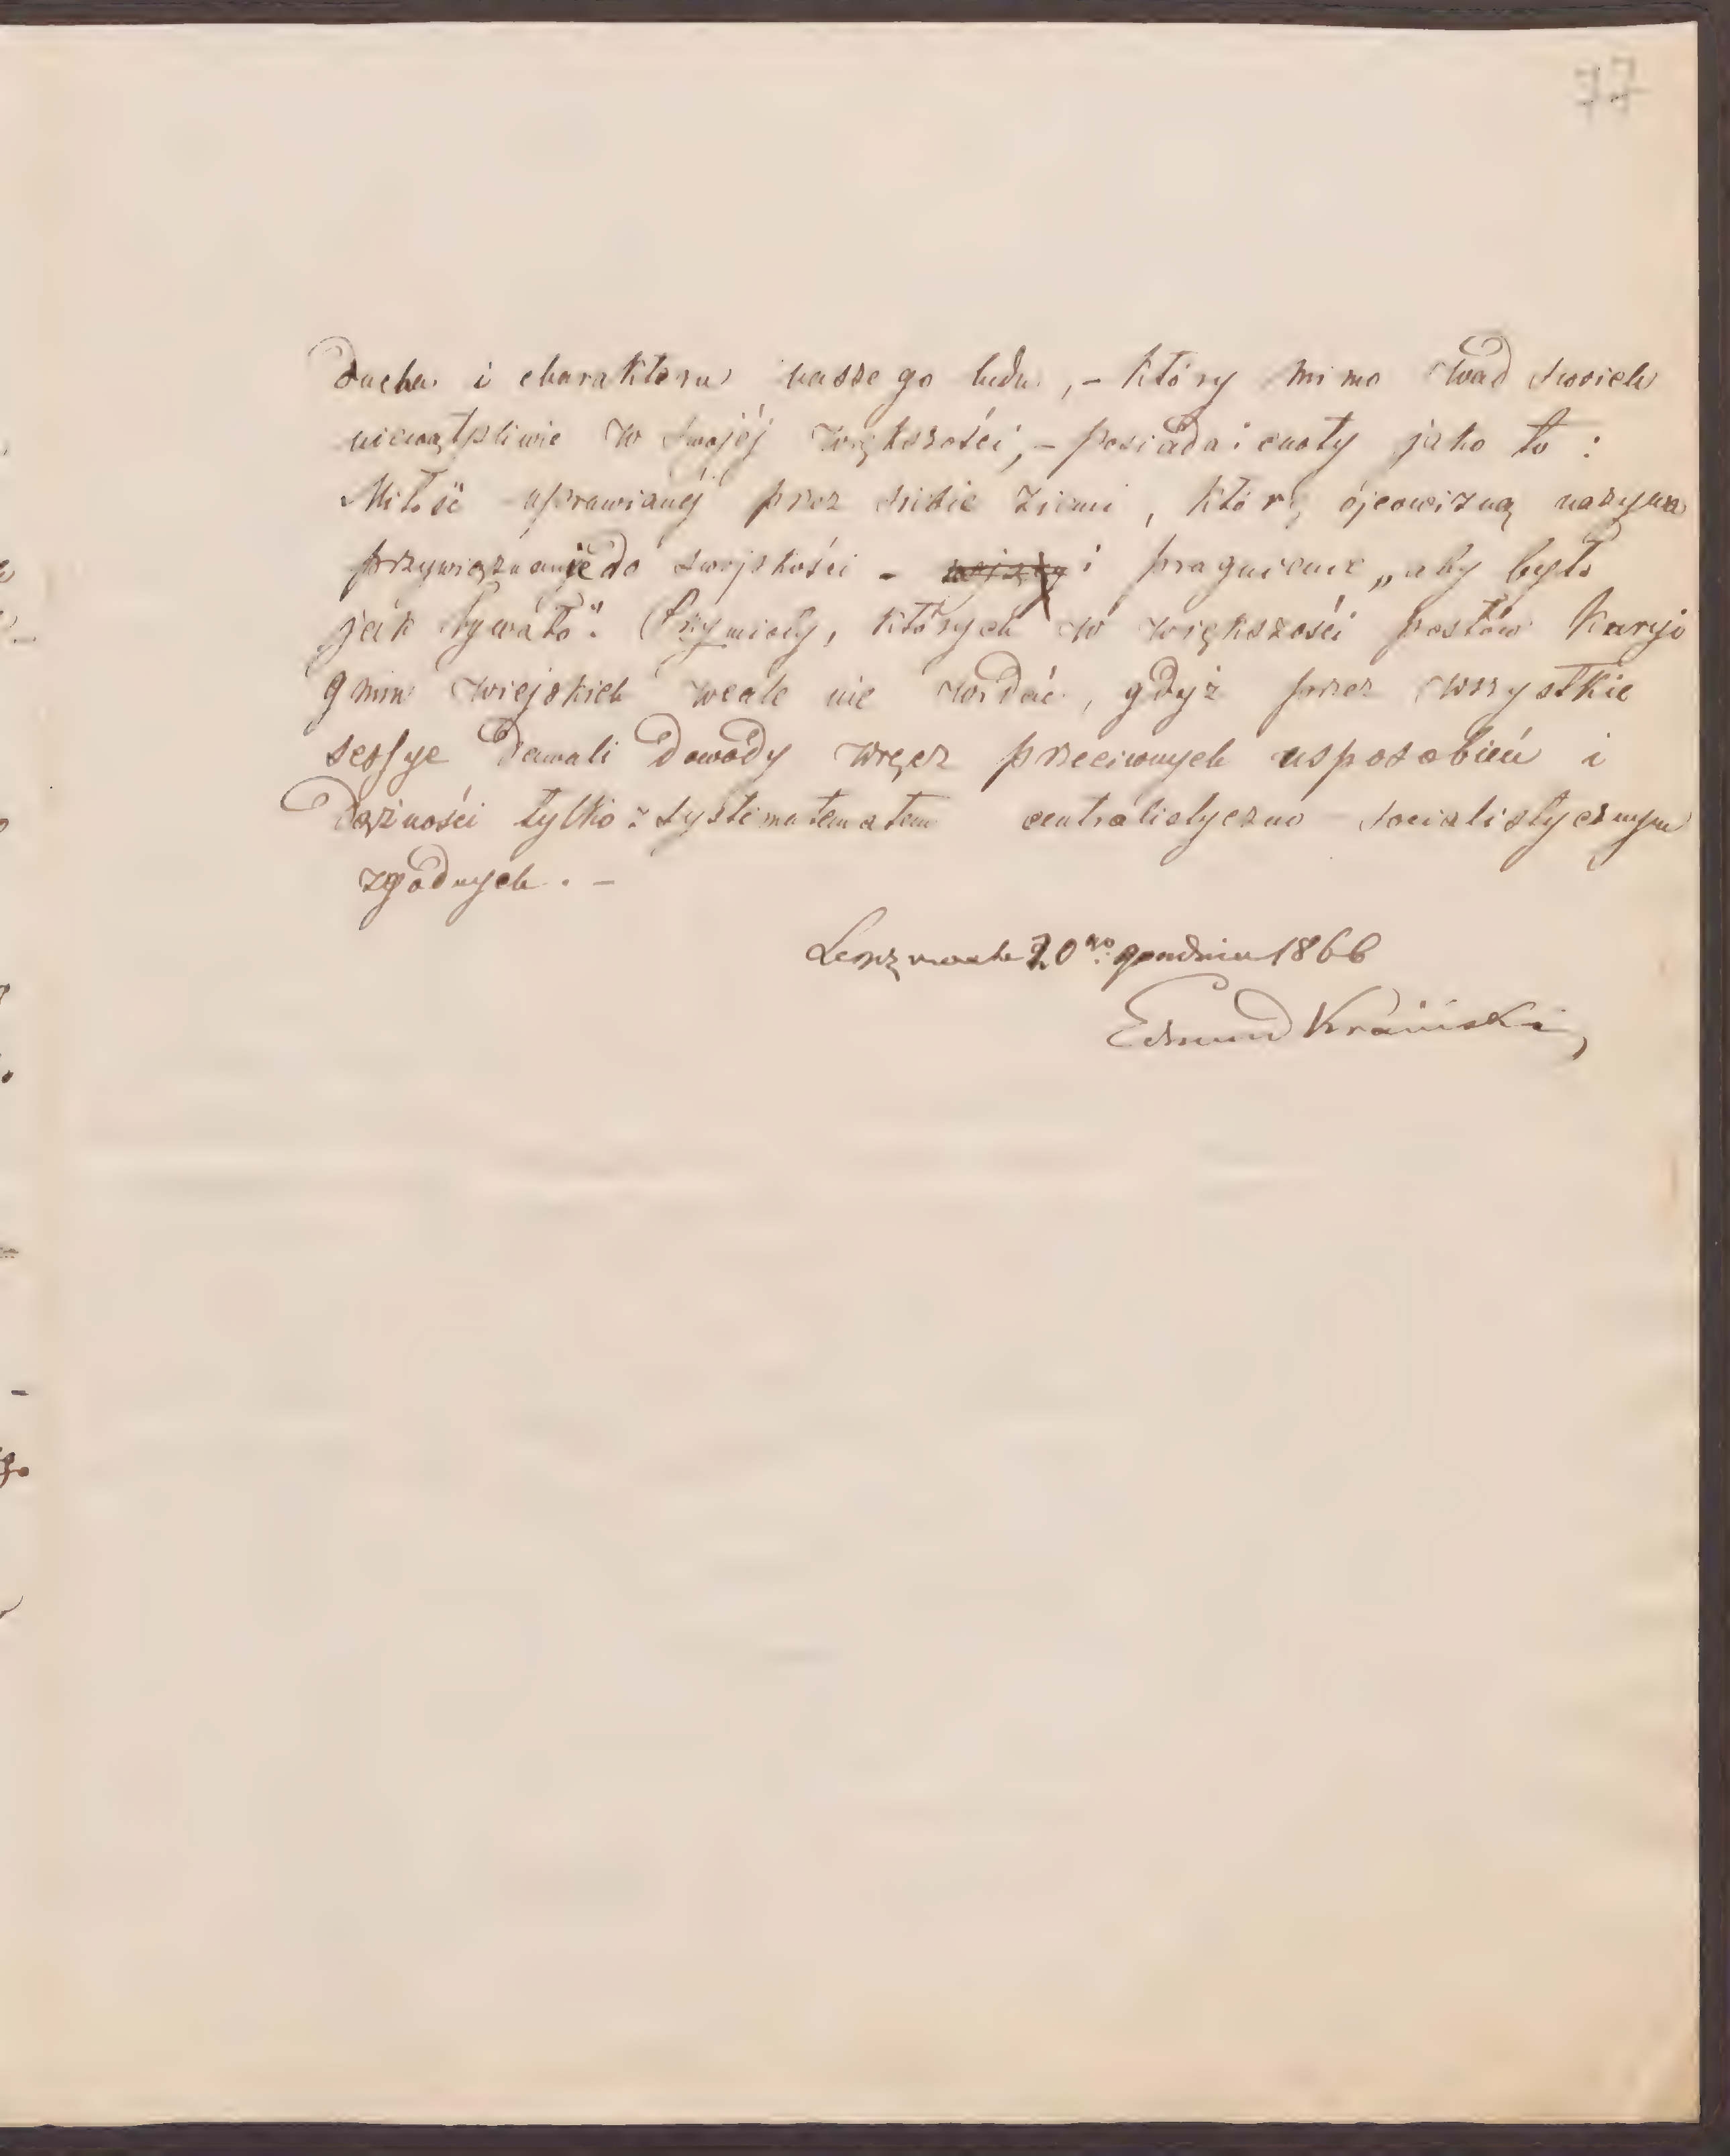 77
ducha i charakteru naszego ludu, – który mimo wad swoich
niewątpliwie w swojéj większości, – posiada i cnoty jako to :
Miłość uprawianéj przez siebie ziemi, którą ojcowizną nazywa
przywiązanie do swojskości – i pragnienie „aby było
jak bywało". Przymioty, których w większości posłów Kuryi
gmin wiejskich wcale nie widać, gdyż przez wszystkie
sessye dawali dowody wręcz przeciwnych usposobień i
dążności tylko z systematem centralistyczno socialistycznym
zgodnych. –
20go grudnia 1866
Edmund Kraiński